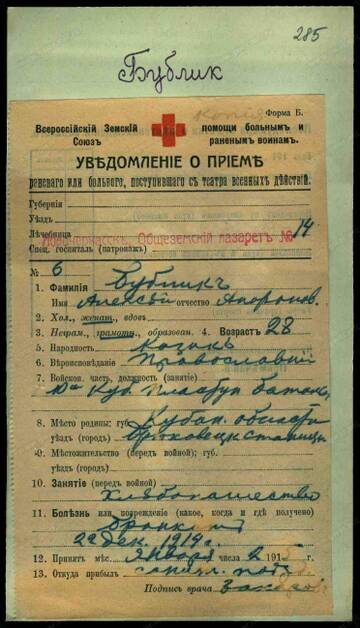 285
Бублик
копія
Форма Б.
Всероссійскій Земскій помощи больнымъ и
Союзъ раненымъ воинамъ.
УВѢДОМЛЕНІЕ О ПРІЕМѢ
раненаго или больного, поступившаго съ театра военныхъ дѣйствій.
Губернія
Уѣздъ
Лѣчебница
Новочеркасск. Общеземскій лазаретъ № 14
Спец. госпиталь (патронажъ)
№ 6
1. Фамилія Бубликъ
Имя Алексѣй отчество
2. Хол., женат., вдовъ
3. Неграм., грамотн., образован. 4. Возрастъ 28
5. Народность Козакъ
6. Вѣроисповѣданіе Православный
7. Войсков. часть, должность (занятіе)
Куб. Пластун. батал.
8. Мѣсто родины: губ. Кубан. области
уѣздъ (город)
9. Мѣстожительство (передъ войной); губ.
уѣздъ (город).
10. Занятіе (передъ войной)
Хлѣбопашество
11. Болѣзнь или поврежденіе (какое, когда и гдѣ получено)
22 дек. 1914 г.
12. Принятъ мѣс. января числа 2 1915 г.
13. Откуда прибылъ
Подпись врача